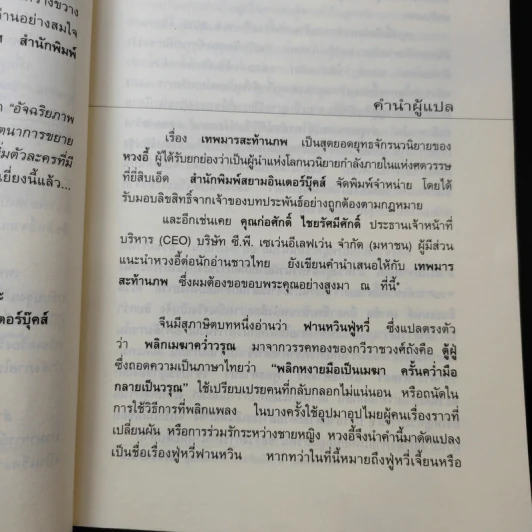 านอย่างสมใจ
สำนักพิมพ์
"อัจฉริยภาพ
ตนาการขยาย
มตัวละครที่มี
เยี่ยงนี้แล้ว...
ดอร์บุ๊คส์
คำนำผู้แปล
เรื่อง เทพมารสะท้านภพ เป็นสุดยอดยุทธจักรนวนิยายของ
หวงอี้ ผู้ได้รับยกย่องว่าเป็นผู้นำแห่งโลกนวนิยายกำลังภายในแห่งศตวรรษ
ที่ยี่สิบเอ็ด สำนักพิมพ์สยามอินเตอร์บุ๊คส์ จัดพิมพ์จำหน่าย โดยได้
รับมอบลิขสิทธิ์จากเจ้าของบทประพันธ์อย่างถูกต้องตามกฎหมาย
และอีกเช่นเคย คุณก่อศักดิ์ ไชยรัศมีศักดิ์ ประธานเจ้าหน้าที่
บริหาร (CEO) บริษัท ซี.พี. เซเว่นอีเลฟเว่น จำกัด (มหาชน) ผู้มีส่วน
แนะนำหวงอี้ต่อนักอ่านชาวไทย ยังเขียนคำนำเสนอให้กับ เทพมาร
สะท้านภพ ซึ่งผมต้องขอขอบพระคุณอย่างสูงมา ณ ที่นี้"
จีนมีสุภาษิตบทหนึ่งอ่านว่า ฟานหวินฟู่หวี่ ซึ่งแปลตรงตัว
ว่า พลิกเมฆาคว่ำวรุณ มาจากวรรคทองของกวีราชวงศ์ถังคือ ตู้ฝู่
ซึ่งถอดความเป็นภาษาไทยว่า "พลิกหงายมือเป็นเมฆา ครั้นคว่ำมือ
กลายเป็นวรุณ" ใช้เปรียบเปรยคนที่กลับกลอกไม่แน่นอน หรือถนัดใน
การใช้วิธีการที่พลิกแพลง ในบางครั้งใช้อุปมาอุปไมยผู้คนเรื่องราวที่
เปลี่ยนผัน หรือการร่วมรักระหว่างชายหญิง หวงอี้จึงนำคำนี้มาดัดแปลง
เป็นชื่อเรื่องฟู่หวี่ฟานหวิน หากทว่าในที่นี้หมายถึงฟู่หวี่เจี้ยนหรือ